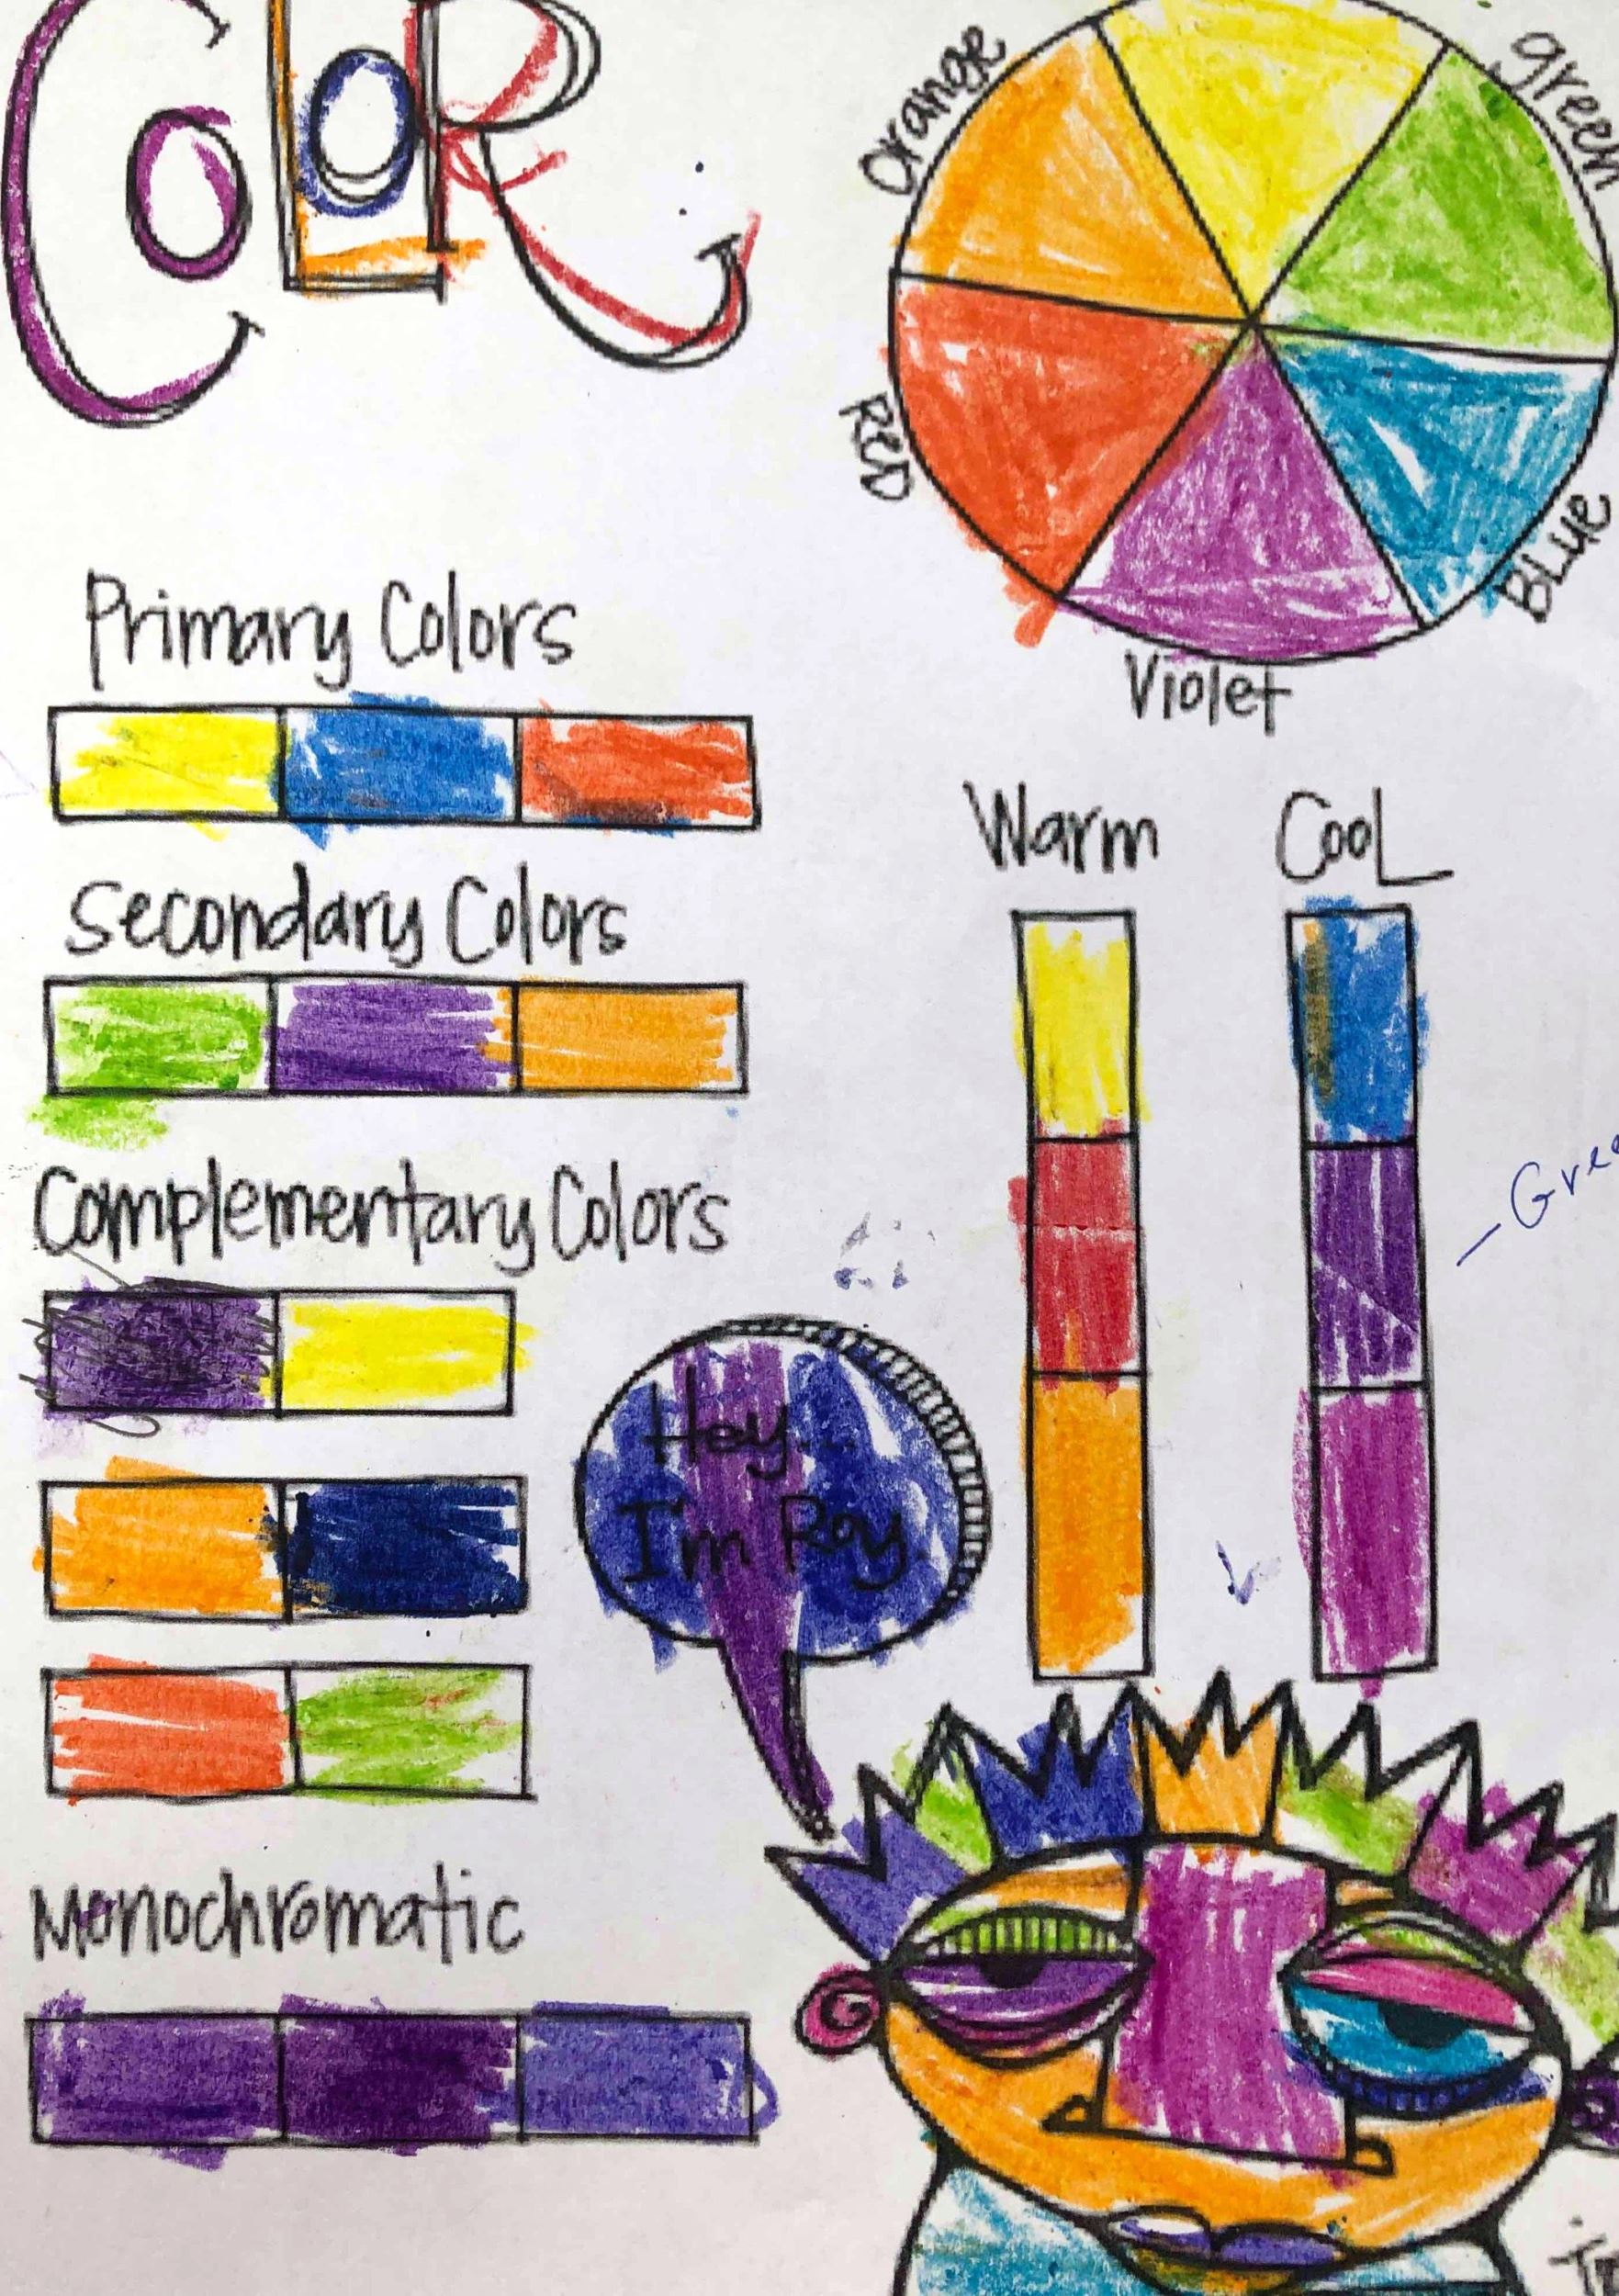 COLOR
Orange
green
Red
Blue
Violet
Primary Colors
Secondary Colors
Complementary Colors
Monochromatic
Warm
Cool
Hey
I'm Roy